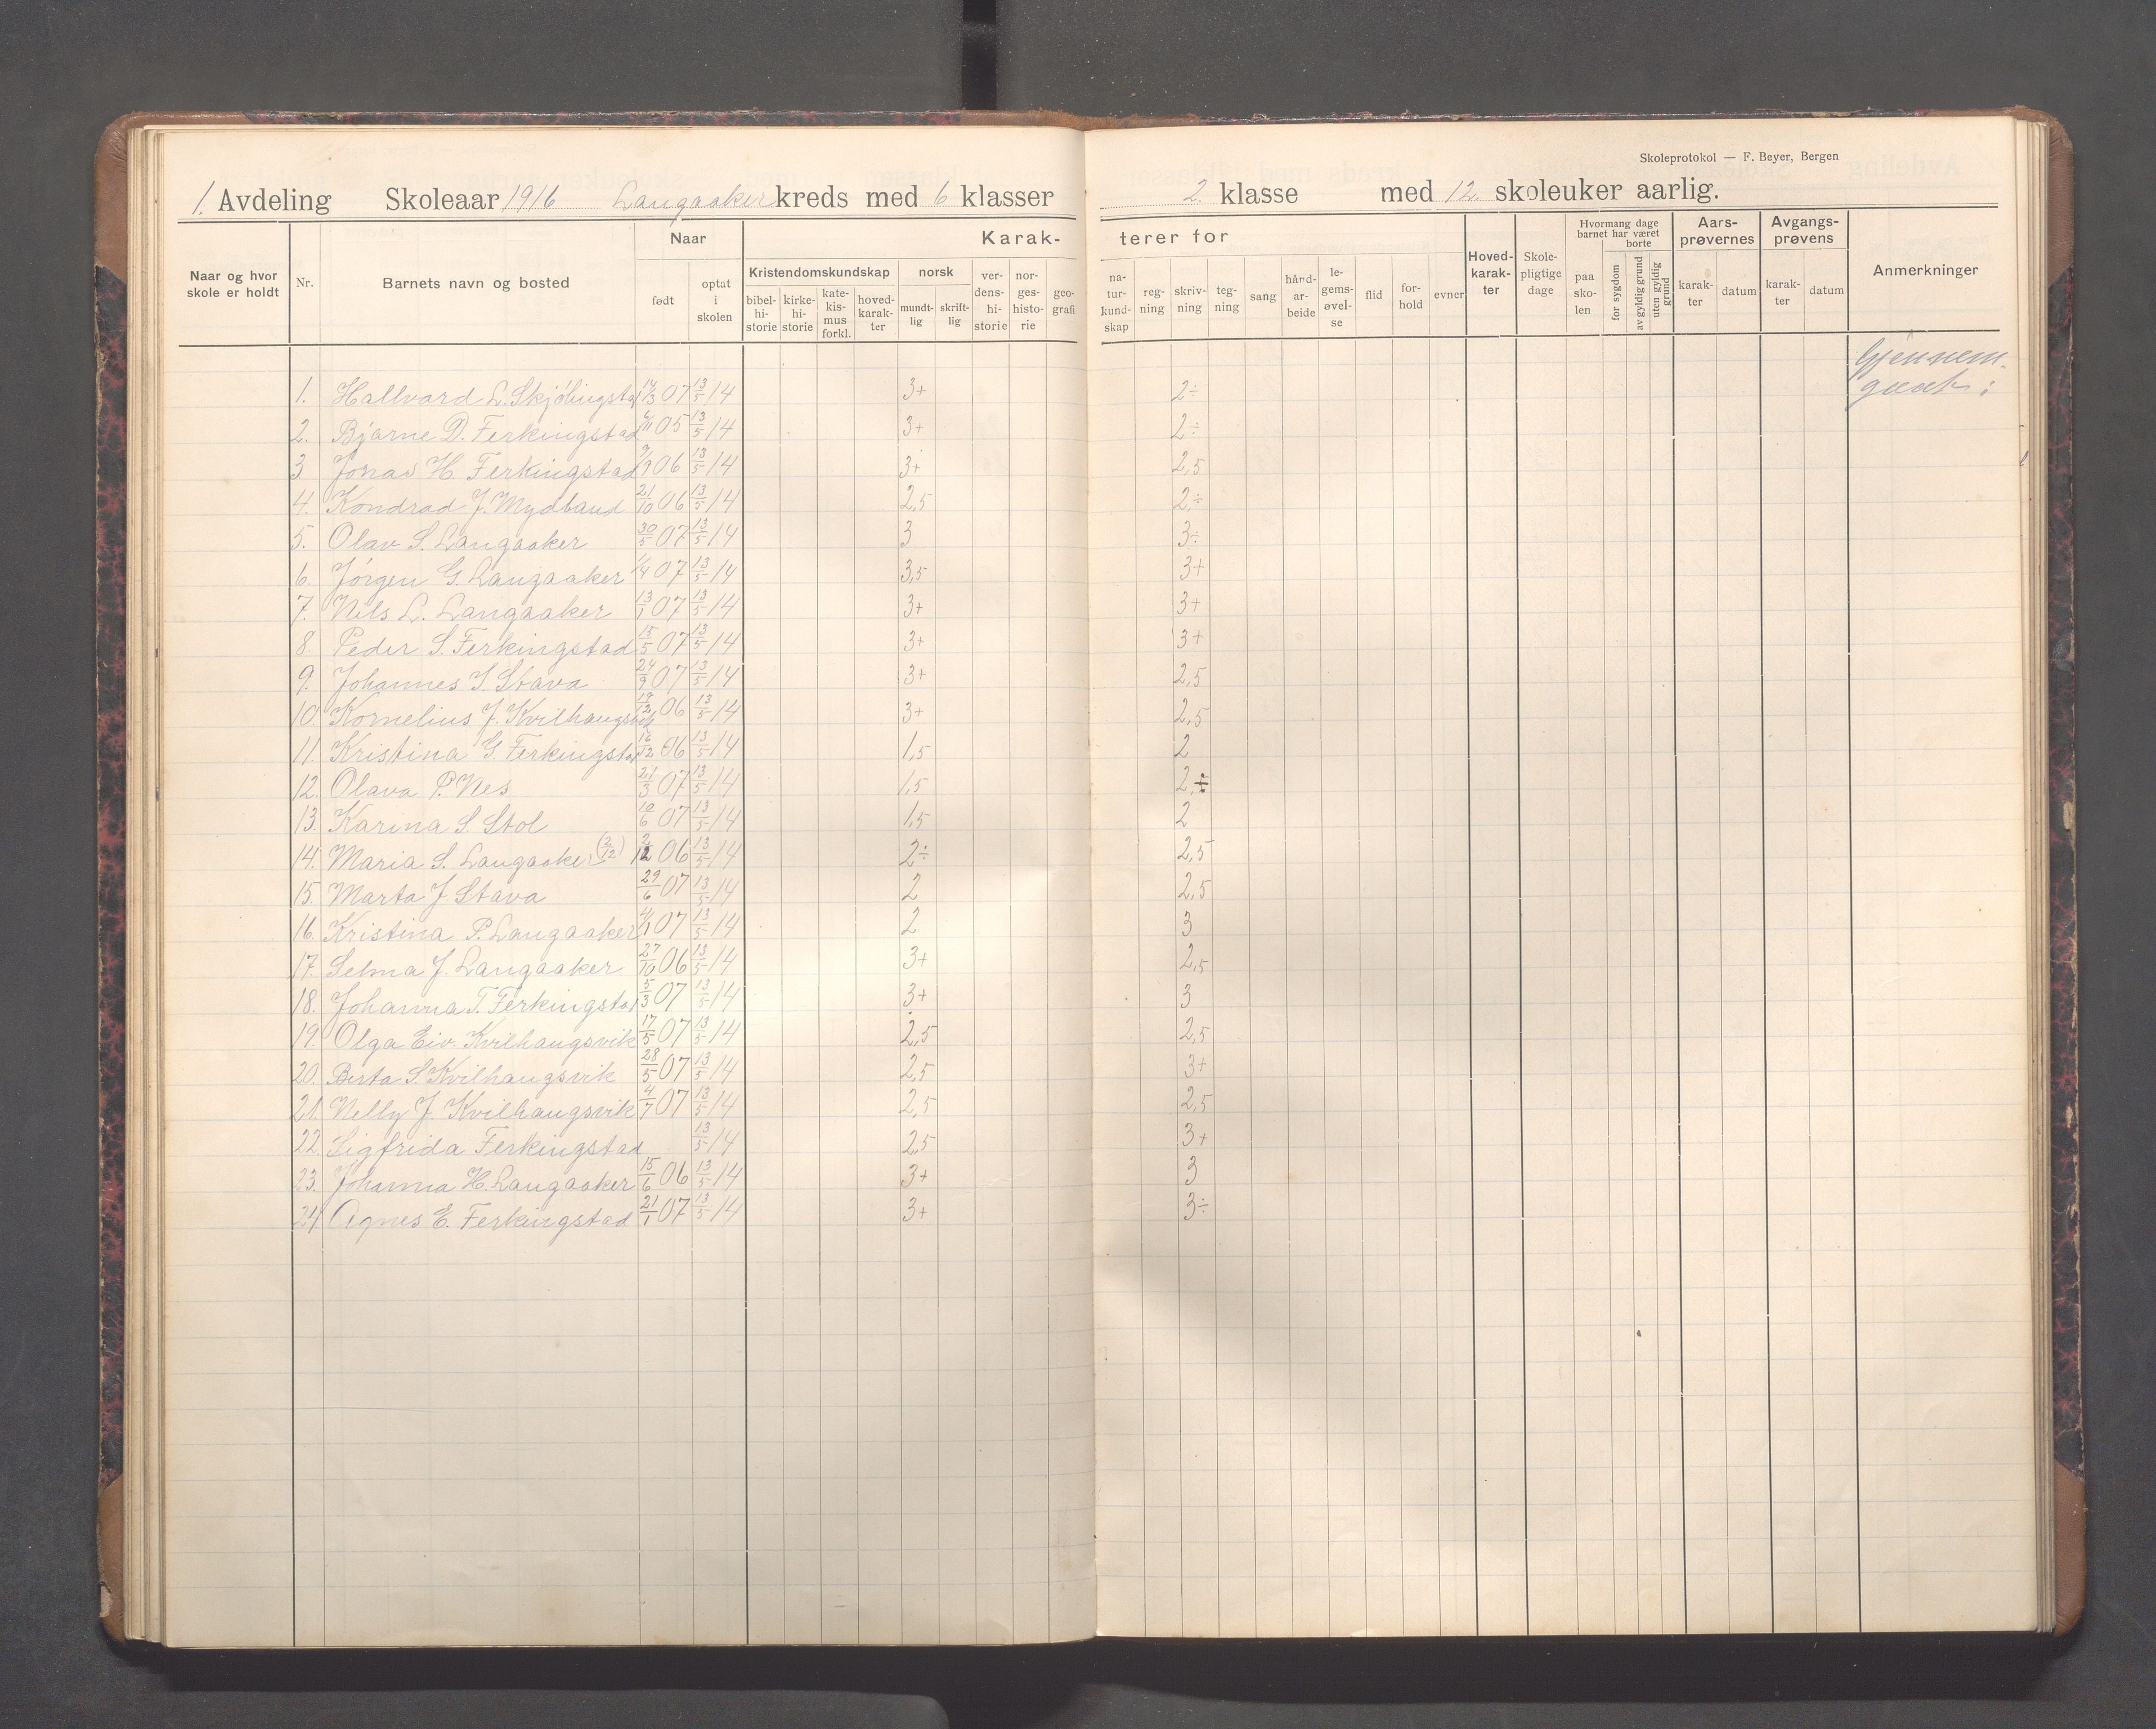 Skoleprotokol — F. Beyer, Bergen
1. Avdeling Skoleaar 1916 Langaaker kreds med 6 klasser 2. klasse med 12 skoleuker aarlig.
Naar og hvor skole er holdt Nr. Barnets navn og bosted Naar født optat i skolen Karakterer for Kristendomskundskap bibelhistorie kirkehistorie katekismus forkl. hovedkarakter norsk mundtlig skriftlig verdenshistorie norgeshistorie geografi naturkundskap regning skrivning tegning sang håndarbeide legemsøvelse flid forhold evner Hovedkarakter Skolepligtige dage Hvormang dage barnet har været paa skolen borte for sygdom av gyldig grund uten gyldig grund Aarsprøvernes karakter datum Avgangsprøvens karakter datum Anmerkninger
Gjennem-
gaat:
1. Hallvard L. Skjölingstad 14/3 07 13/5 14 3+ 2÷
2. Bjarne D. Ferkingstad 6/11 05 13/5 14 3+ 2÷
3 Jonas H. Ferkingstad 9/9 06 13/5 14 3+ 2,5
4. Kondrad J. Mydland 21/10 06 13/5 14 2,5 2÷
5. Olav S. Langaaker 30/5 07 13/5 14 3 3÷
6. Jörgen G. Langaaker 1/4 07 13/5 14 3,5 3+
7. Nils L. Langaaker 13/1 07 13/5 14 3+ 3+
8. Peder S. Ferkingstad 15/5 07 13/5 14 3+ 3+
9. Johannes S. Stava 24/9 07 13/5 14 3+ 2,5
10. Kornelius J. Kvilhaugsvik 06 13/5 14 3+ 2,5
11. Kristina G. Ferkingstad 16/12 06 13/5 14 1,5 2
12. Olava P. Nes 21/3 07 13/5 14 1,5 2÷
13. Karina S. Stol 10/6 07 13/5 14 1,5 2
14. Maria S. Langaaker (2/12) 2/12 06 13/5 14 2÷ 2,5
15. Marta J. Stava 29/6 07 13/5 14 2 2,5
16. Kristina P. Langaaker 4/1 07 13/5 14 2 3
17. Selma J. Langaaker 27/10 06 13/5 14 3+ 2,5
18. Johanna T. Ferkingstad 5/3 07 13/5 14 3+ 3
19. Olga Eiv. Kvilhaugsvik 17/5 07 13/5 14 2,5 2,5
20. Berta S. Kvilhaugsvik 28/5 07 13/5 14 2,5 3+
21. Nelly J. Kvilhaugsvik 4/7 07 13/5 14 2,5 2,5
22. Sigfrida Ferkingstad 13/5 14 2,5 3+
23. Johanna H. Langaaker 15/6 06 13/5 14 3+ 3
24. Agnes E. Ferkingstad 21/1 07 13/5 14 3+ 3÷